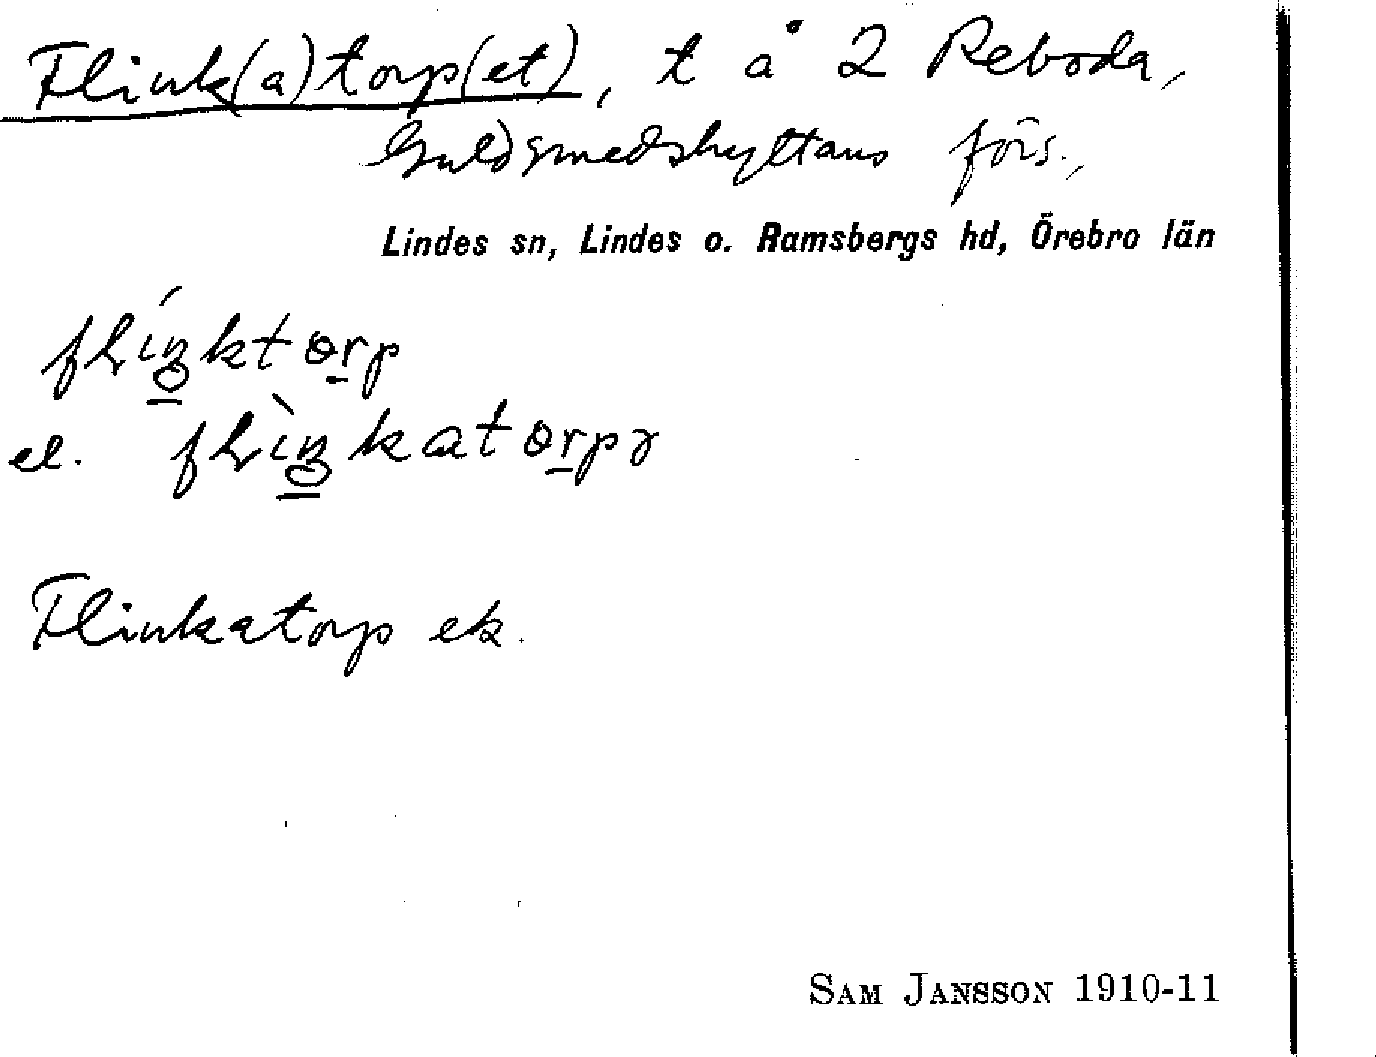 Flink(a)torp(et), t å 2 Reboda,
Guldsmedshyttans förs.,
Lindes sn, Lindes o. Ramsbergs hd, Örebro län
el.
Flinkatorp ek.
SAM JANSSON 1910-11